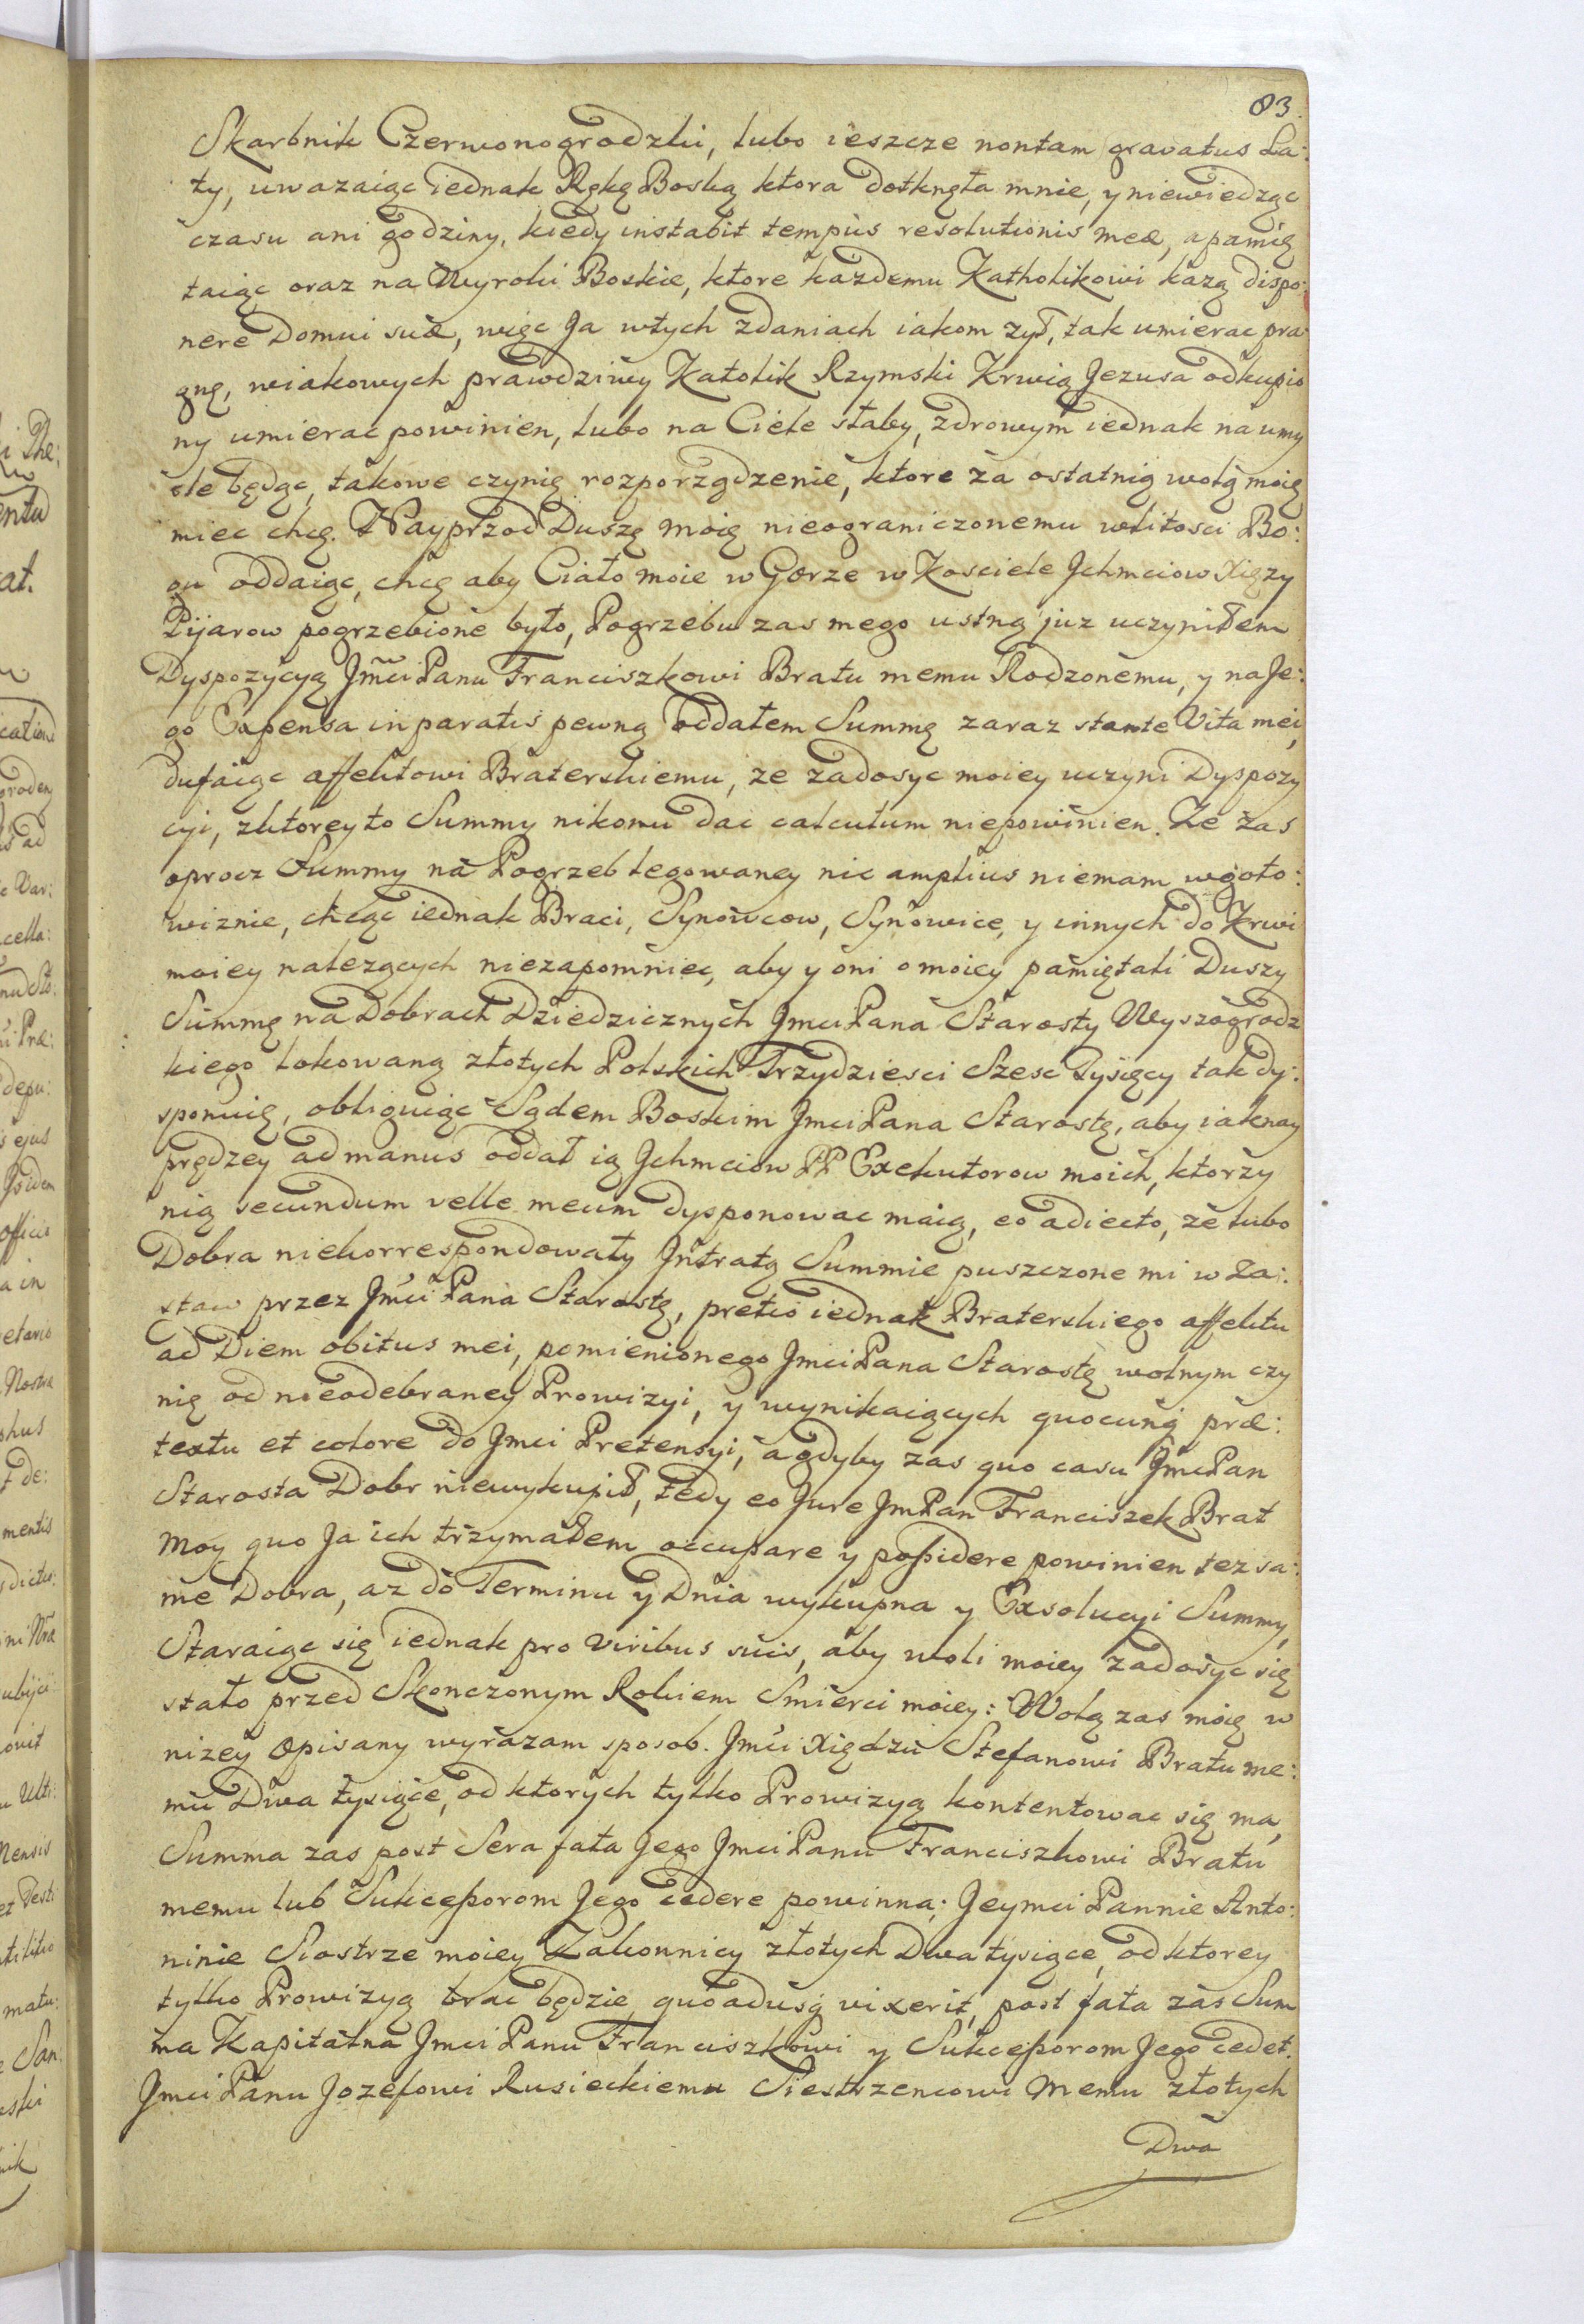 83
Skarbnik Czerwonogrodzki, lubo ieszcze nontam gravatus La:
ty, uwazaiąc iednak Rękę Boską ktora dotknęła mnie, y niewiedząc
czasu ani godziny, kiedy instabit tempus resolutionis meæ, a pamię
taiąc oraz na Wyroki Boskie, ktore kazdemu Katholikowi kazą dispo:
nere Domui suæ, więc Ja wtych zdaniach iakom zył, tak umierac pra
gnę, wiakowych prawdziwy Katolik Rzymski Krwią Jezusa odkupio
ny umierac powinien, lubo na Ciele słaby, zdrowym iednak na umy
sle będąc, takowe czynię rozporządzenie, ktore za ostatnią wolą moię
miec chcę. Nayprzod Duszę moię nieograniczonemu wlitosci Bo:
gu oddaiąc, chcę aby Ciało moie w Gorze w Kosciele Jchmciow Xięzy
Pijarow pogrzebione było, Pogrzebu zas mego ustną juz uczyniłem
Dyspozycyą Jmci Panu Franciszkowi Bratu memu Rodzonemu, y na Je:
go Expensa in paratis pewną oddałem Summę zaraz stante Vita mei,
dufaiąc affektowi Braterskiemu, ze zadosyc moiey uczyni Dyspozy
cyi, zktorey to Summy nikomu dac calculum niepowinien. Ze zas
oprocz Summy na Pogrzeb legowaney nic amplius niemam wgoto:
wiznie, chcąc iednak Braci, Synowcow, Synowice, y innych do Krwi
moiey nalezących niezapomniec, aby y oni o moiey pamiętali Duszy
Summę na Dobrach Dziedzicznych Jmci Pana Starosty Wyszogrodz
kiego lokowaną złotych Polskich Trzydziesci Szesc Tysięcy tak dy:
sponuię, obliguiąc Sądem Boskim Jmci Pana Starostę, aby iaknay
prędzey ad manus oddał ią Jchmciow PP Exekutorow moich, ktorzy
nią secundum velle meum dysponowac maią, eo adiecto, ze lubo
Dobra niekorrespondowały Jntratą Summie puszczone mi w Za:
staw przez Jmci Pana Starostę, pretio iednak Braterskiego affektu
ad Diem obitus mei, pomienionego Jmci Pana Starostę wolnym czy
nię od nieodebraney Prowizyi, y wynikaiących quocunq præ:
textu et colore do Jmci Pretensyi, a gdyby zas quo casu Jmci Pan
Starosta Dobr niewykupił, tedy eo Jure Jm Pan Franciszek Brat
moy quo Ja ich trzymałem occupare y possidere powinien tez sa:
me Dobra, az do Terminu y Dnia wykupna y Exsolucyi Summy,
Staraiąc się iednak pro viribus suis, aby woli moiey zadosyc się
stało przed Skonczonym Rokiem Smierci moiey: Wolą zas moię w
nizey opisany wyrazam sposob. Jmci Xiędzu Stefanowi Bratu me:
mu Dwa tysiące, od ktorych tylko Prowizyą kontentowac się ma,
Summa zas post Sera fata Jego Jmci Panu Franciszkowi Bratu
memu lub Sukcessorom Jego cedere powinna; Jeymci Pannie Anto:
ninie Siostrze moiey Zakonnicy złotych Dwa tysiące, od ktorey
tylko Prowizyą brac będzie quoadusq vixerit, post fata zas Sum
ma Kapitalna Jmci Panu Franciszkowi y Sukcessorom Jego cedet.
Jmci Panu Jozefowi Rusieckiemu Siestrzencowi memu złotych
Dwa